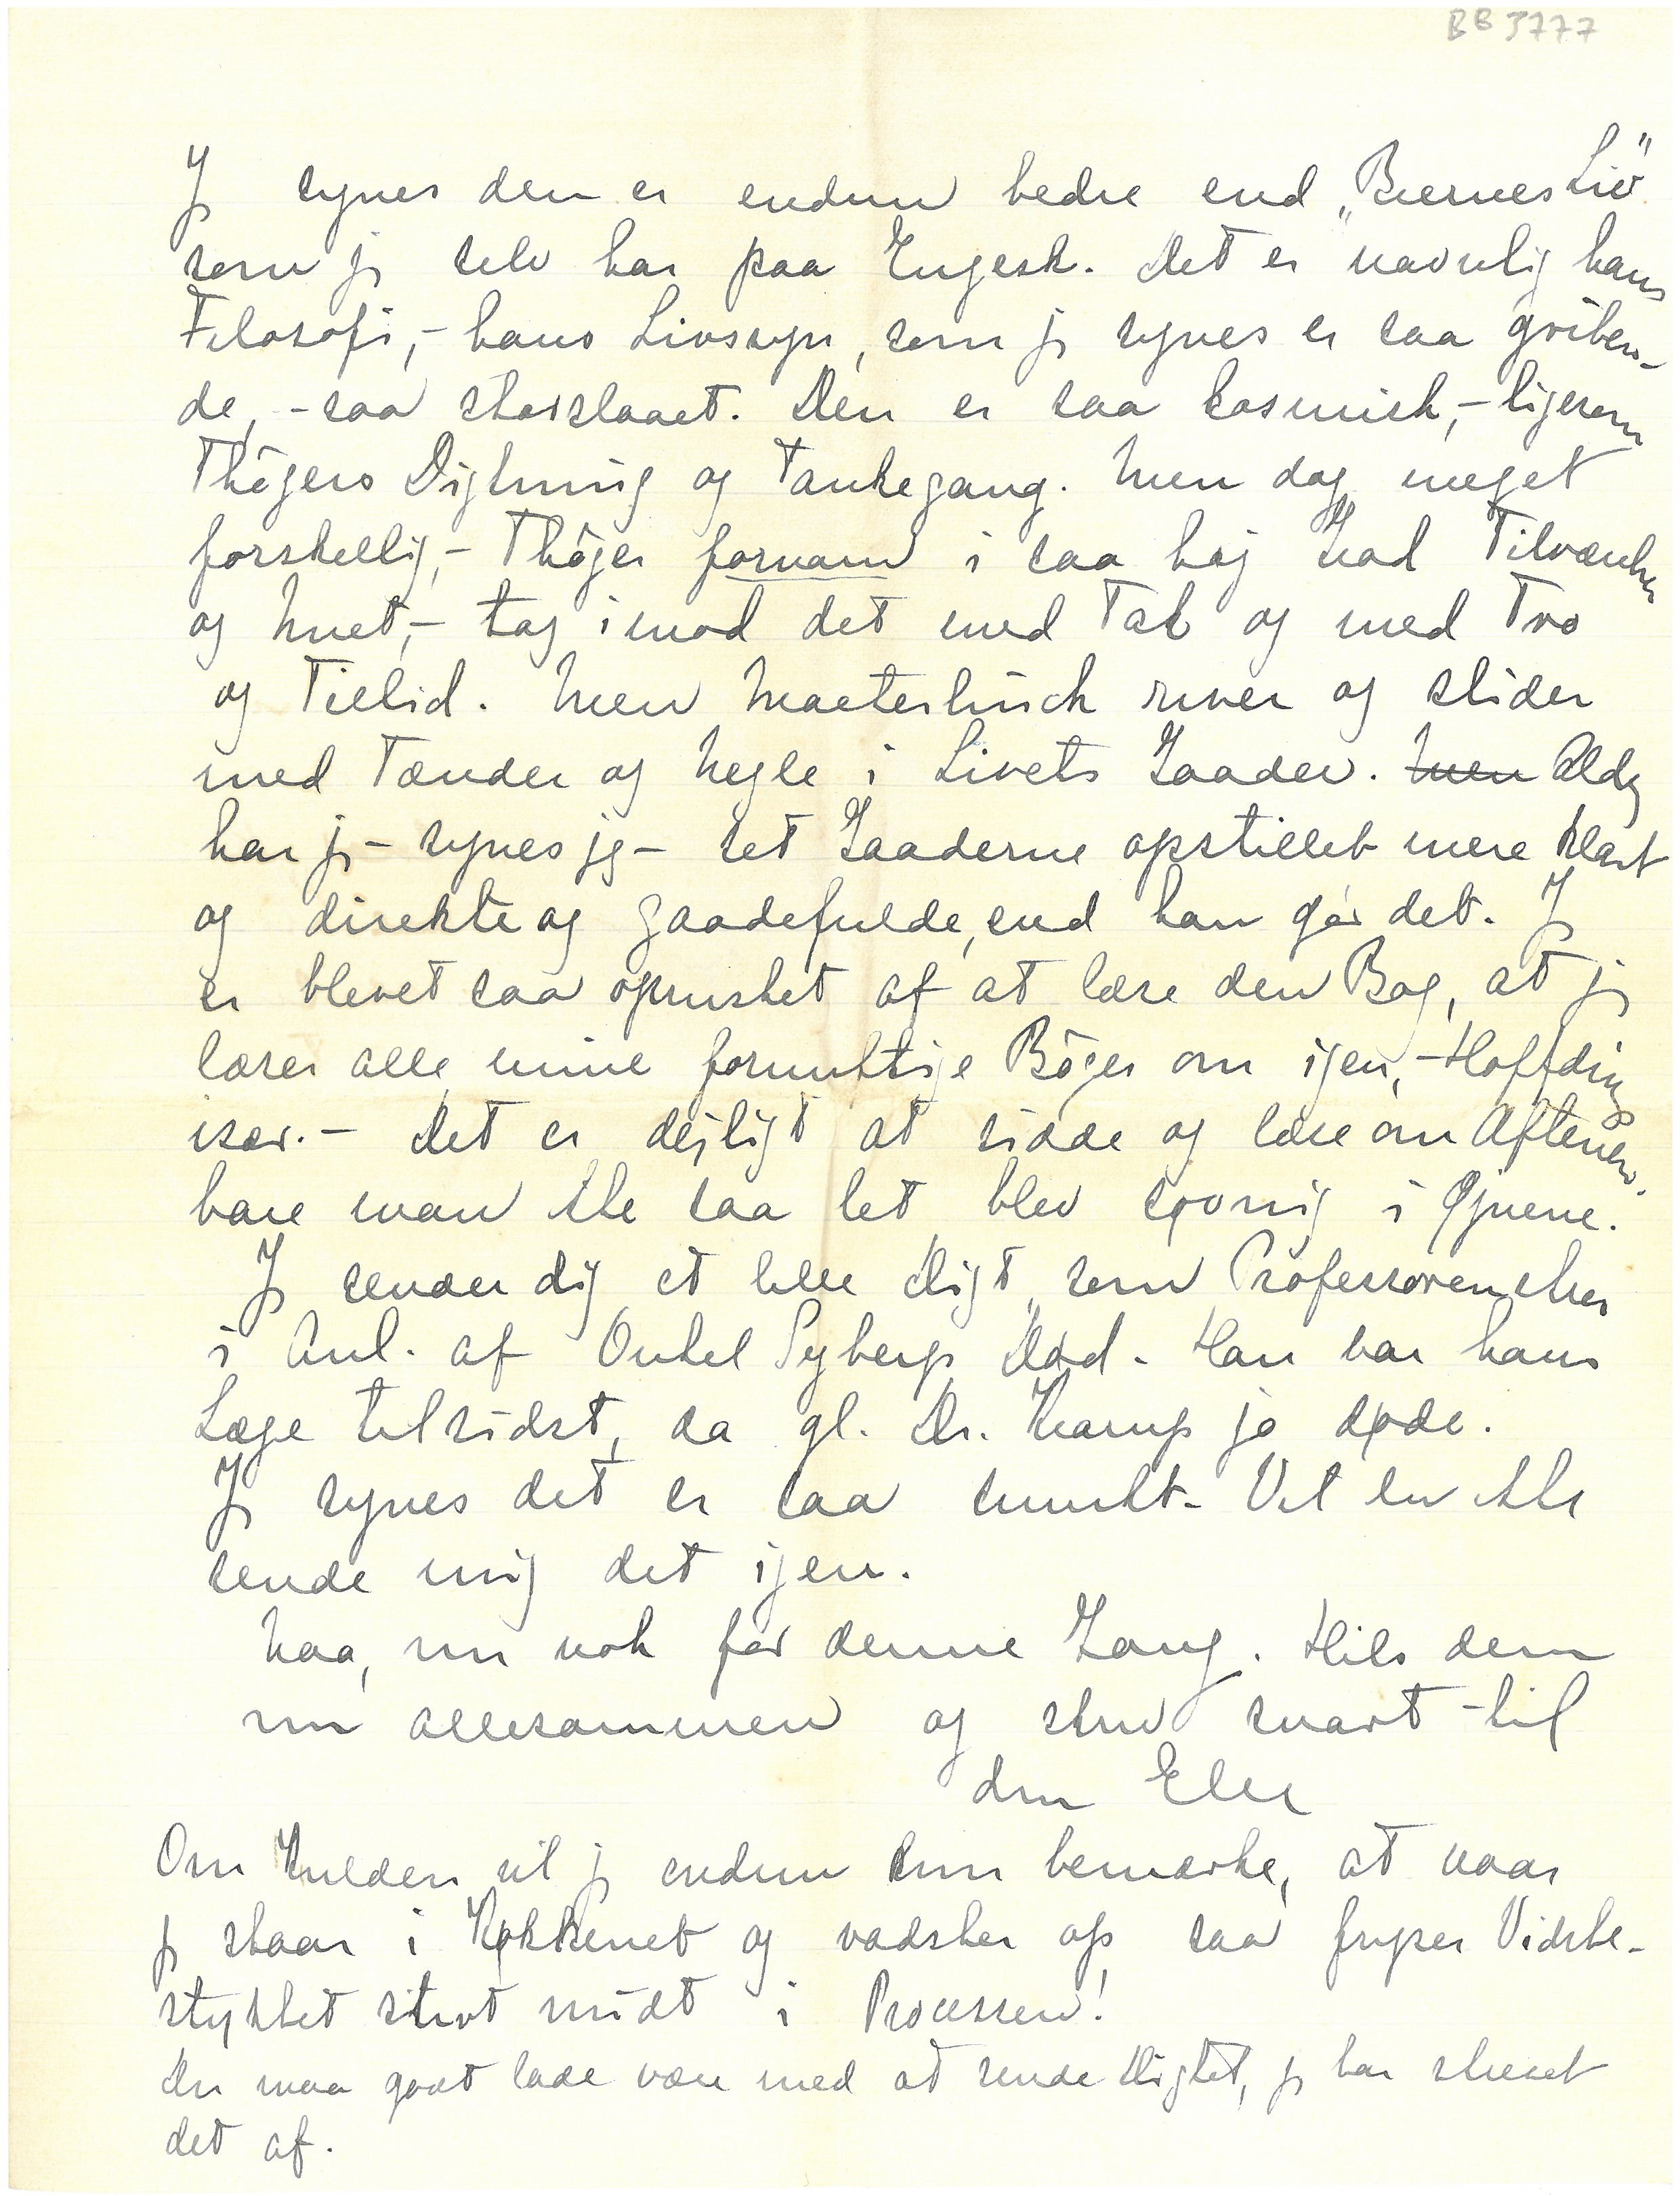 BB 3777
Jg synes den er endnu bedre end „Biernes Liv"
som jg selv har paa Engesk. Det er navnlig hans
Filosofi, - hans Livssyn, som jg synes er saa griben-
de, - saa storslaaet. Den er saa kosmisk, - ligesom
Thøgers Digtning og Tankegang. Men dog meget
forskellig, - Thøger fornam i saa høj Grad Tilværelsen
og Livet, - tog imod det med Tak og med Tro
og Tillid. Men Maeterlinck river og slider
med Tænder og Negle i Livets Gaader. Men Aldrig
har jg - synes jg - set Gaaderne opstillet mere klart
og direkte og gaadefulde, end han gør det. Jg
er blevet saa oprusket af at læse den Bog, at jg
læser alle mine fornuftige Bøger om igen, - Høffding
især. - Det er dejligt at sidde og læse om Aftenen.
bare man ikke saa let blev søvnig i Øjnene.
Jg sender dig et lille Digt, som Professoren skrev
i Anl. af Onkel Sybergs Død. Han var hans
Læge tilsidst, da gl. Dr. Karup jo døde.
Jg synes det er saa smukt. Vil du ikke
sende mig det igen.
Naa, nu nok for denne Gang. Hils dem
nu allesammen og skriv snart til
din Elle
Om Kulden vil jg endnu kun bemærke, at naar
jg staar i Køkkenet og vadsker op, saa fryser Vidske-
stykket stivt midt i Processen!
Du maa godt lade være med at sende Digtet, jg har skrevet
det af.